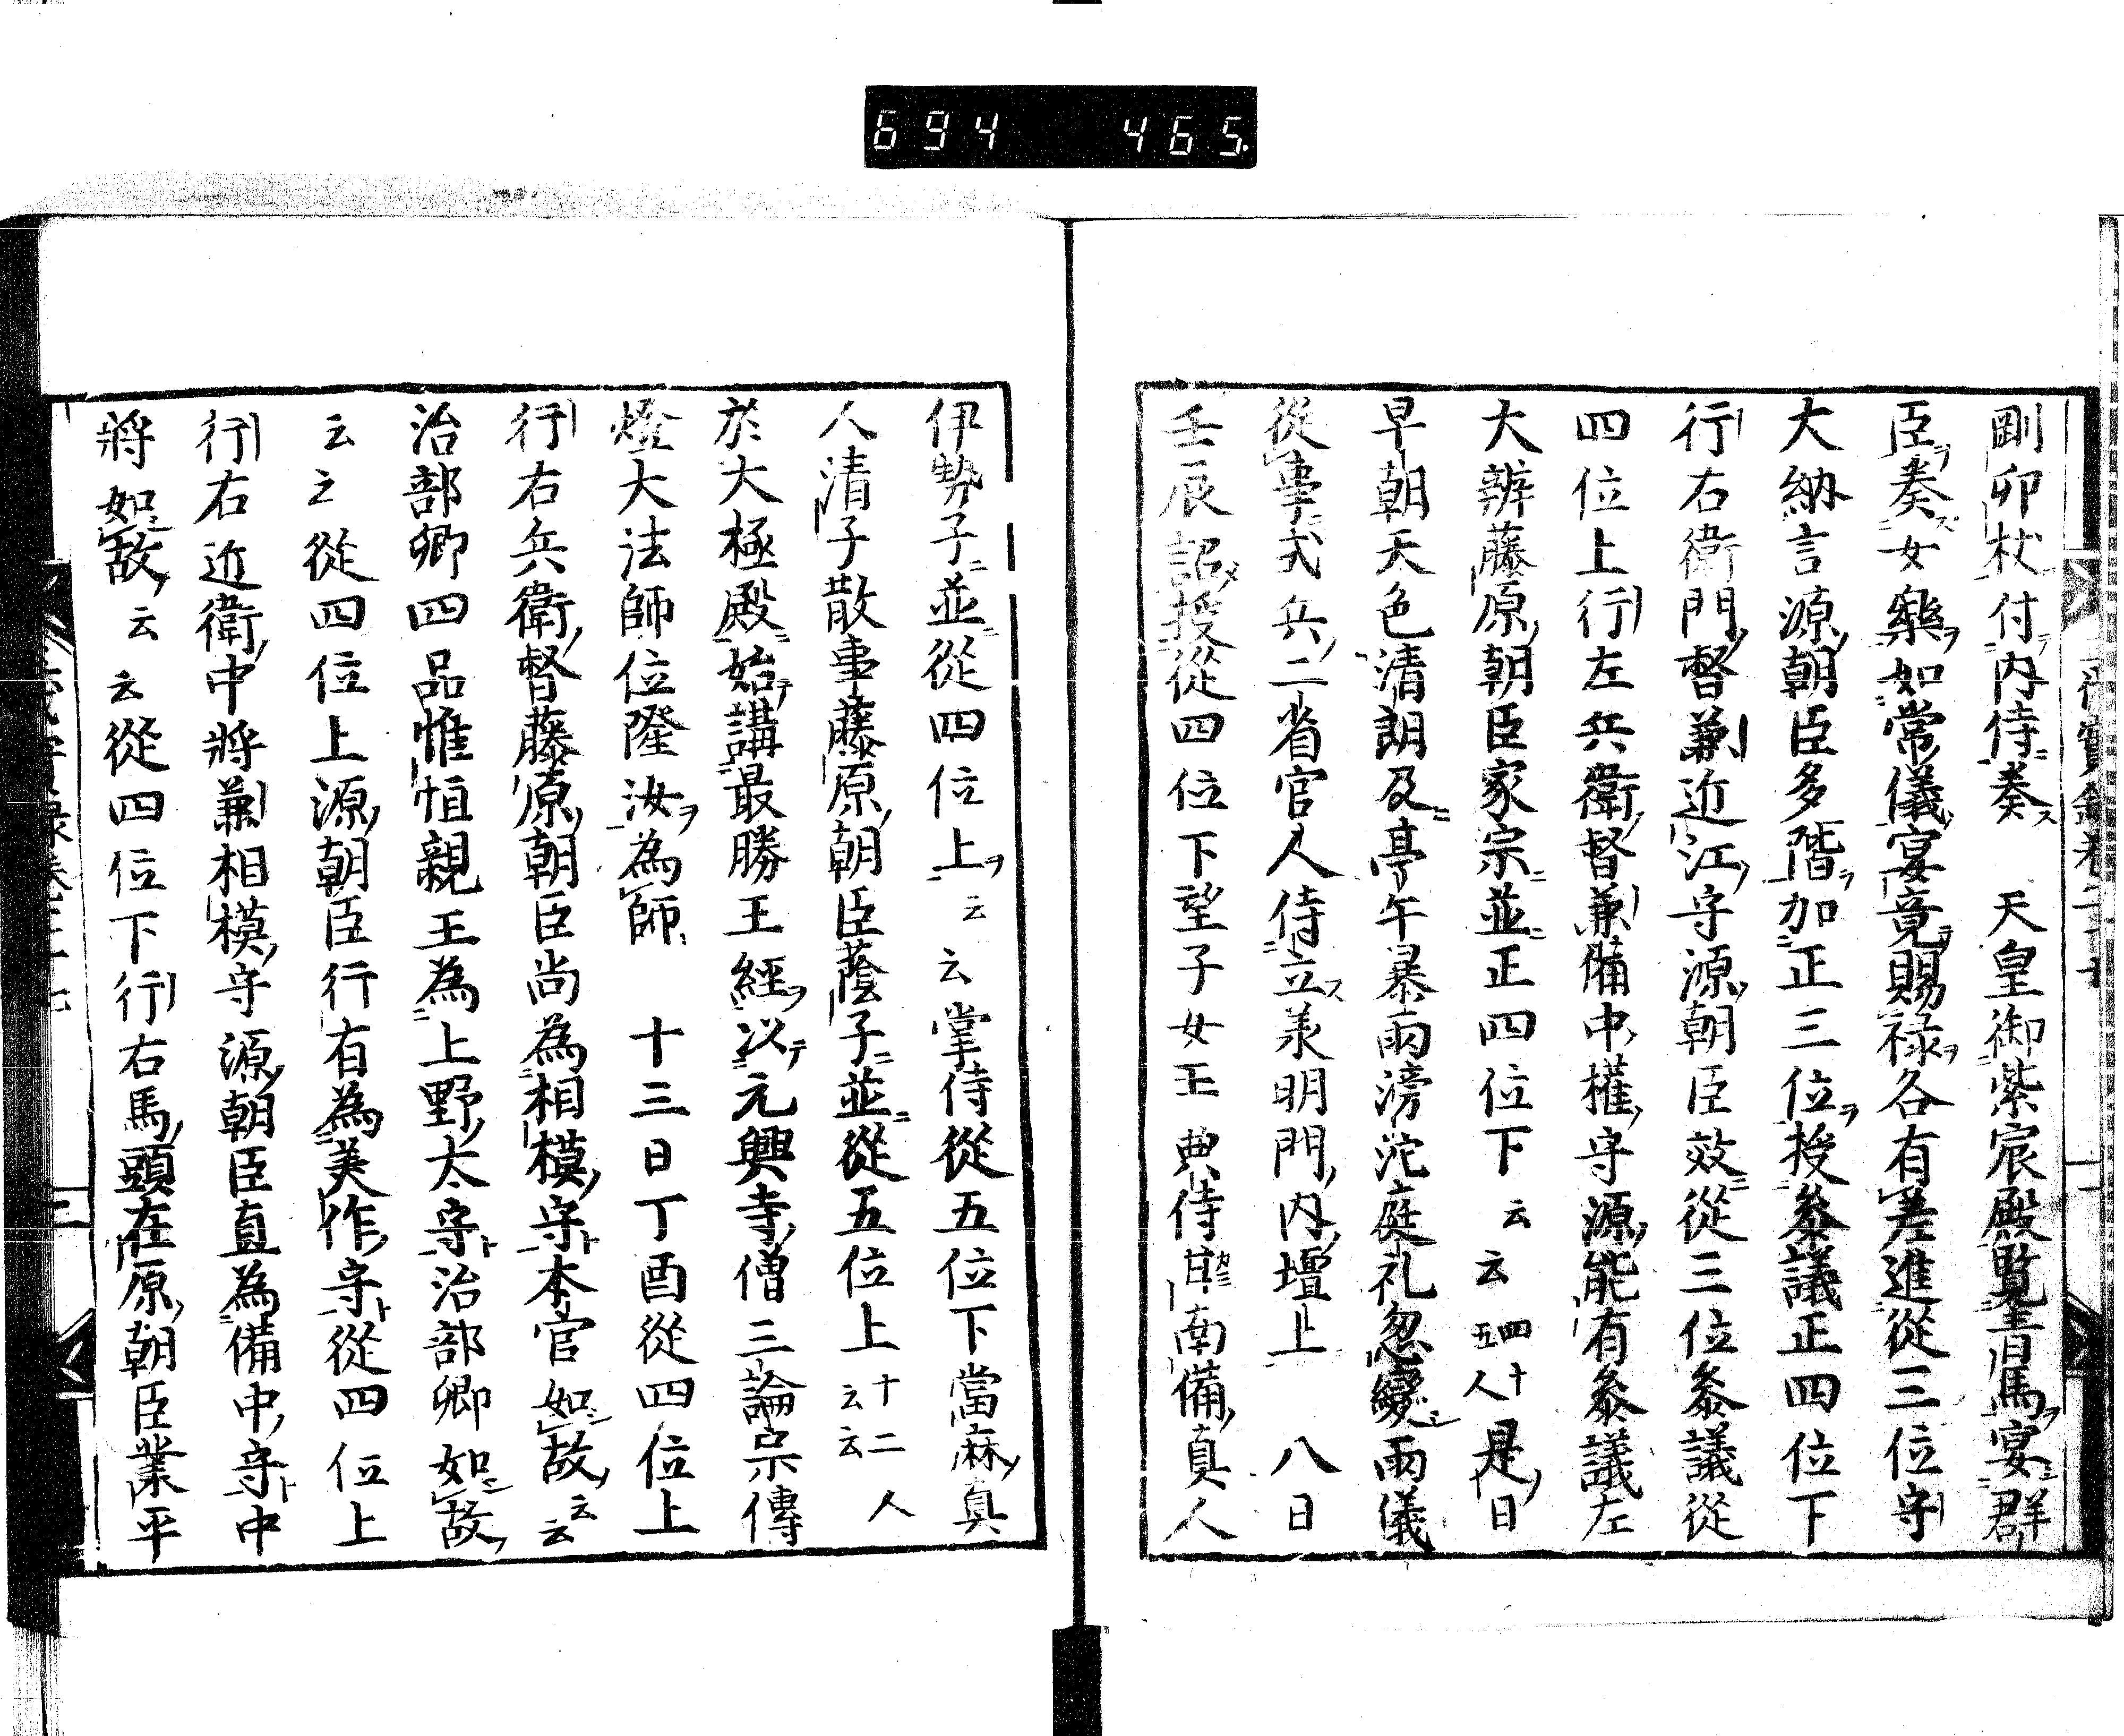 694 465
剛卯杖付内侍奏　天皇御紫宸殿覧青馬宴群
臣奏女樂如常儀宴竟賜禄各有差進從三位守
大納言源朝臣多階加正三位授參議正四位下
行右衛門督兼近江守源朝臣效從三位參議從
四位上行左兵衛督兼備中權守源能有參議左
大辨藤原朝臣家宗並正四位下云云四十五人是日
早朝天色清朗及亭午暴雨滂沱庭礼忽變雨儀
從事式兵二省官人侍立美明門内壇上　八日
壬辰詔授從四位下望子女王典侍甘南備真人
伊勢子並從四位上云云掌侍從五位下當麻真
人清子散事藤原朝臣蔭子並從五位上十二人云云
於大極殿始講最勝王經以元興寺僧三論宗傳
燈大法師位隆汝為師　十三日丁酉從四位上
行右兵衛督藤原朝臣尚為相模守本官如故云云
治部卿四品惟恒親王為上野太守治部卿如故
云之從四位上源朝臣行有為美作守從四位上
行右近衛中將兼相模守源朝臣直為備中守中
將如故云云從四位下行右馬頭在原朝臣業平